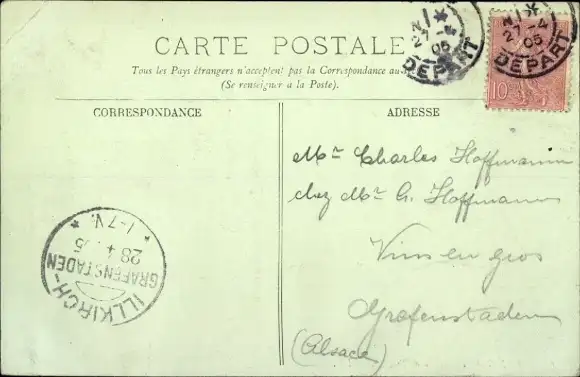 CARTE POSTALE
Tous les Pays étrangers n'acceptent pas la Correspondance au
(Se renseigner a la Poste).
CORRESPONDANCE
ADRESSE
Mr Charles Hoffmann
chez Mr G. Hoffmann
Vins en gros
Grafenstaden
(Alsace)
27 4 05
DEPART
27 4 05
DEPART
10
ILLKIRCH-
GRAFENSTADEN
28 4 05
1-7 V.